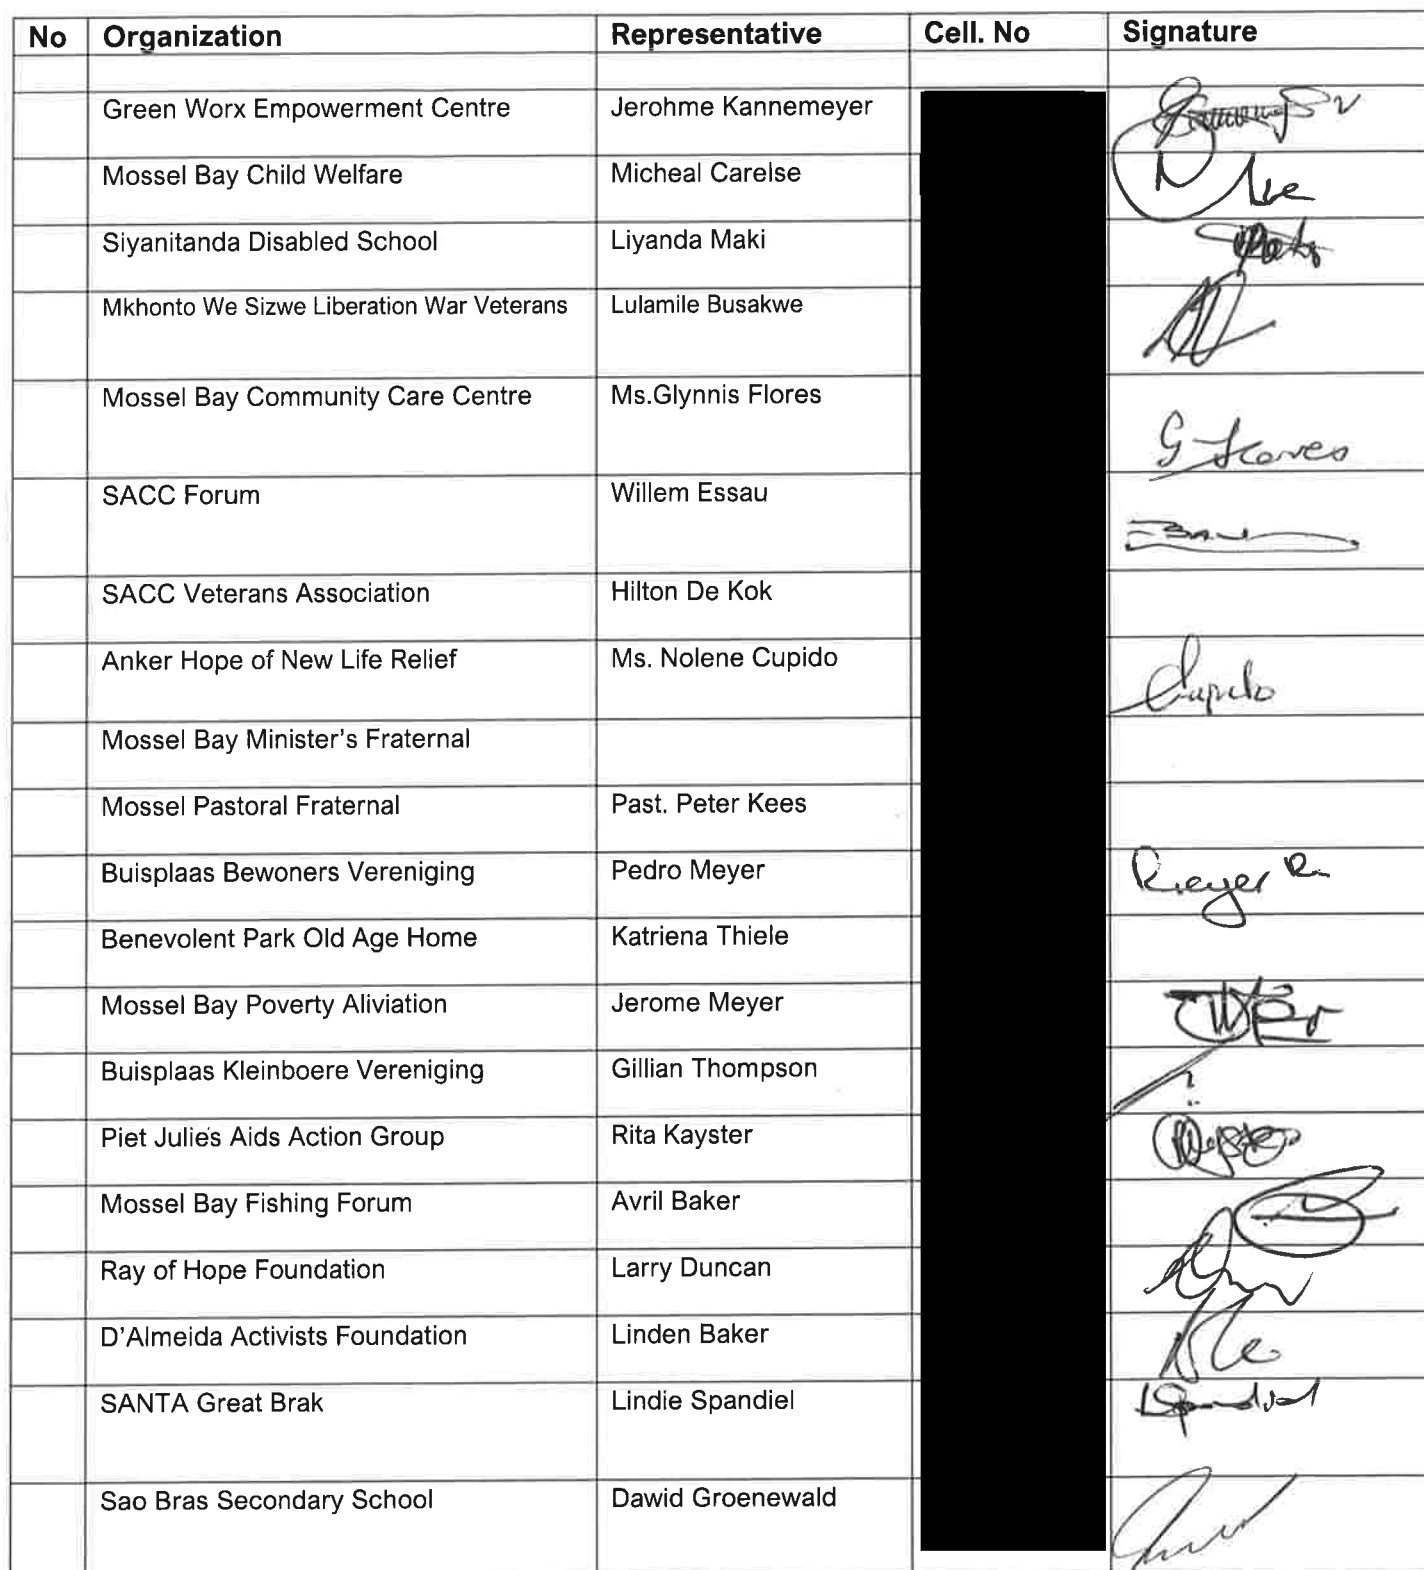 No Organization Representative Cell. No Signature
Green Worx Empowerment Centre Jerohme Kannemeyer
Mossel Bay Child Welfare Micheal Carelse
Siyanitanda Disabled School Liyanda Maki
Mkhonto We Sizwe Liberation War Veterans Lulamile Busakwe
Mossel Bay Community Care Centre Ms.Glynnis Flores
SACC Forum Willem Essau
SACC Veterans Association Hilton De Kok
Anker Hope of New Life Relief Ms. Nolene Cupido Cupido
Mossel Bay Minister's Fraternal
Mossel Pastoral Fraternal Past. Peter Kees
Buisplaas Bewoners Vereniging Pedro Meyer
Benevolent Park Old Age Home Katriena Thiele
Mossel Bay Poverty Aliviation Jerome Meyer
Buisplaas Kleinboere Vereniging Gillian Thompson ?
Piet Julie's Aids Action Group Rita Kayster
Mossel Bay Fishing Forum Avril Baker
Ray of Hope Foundation Larry Duncan
D'Almeida Activists Foundation Linden Baker
SANTA Great Brak Lindie Spandiel
Sao Bras Secondary School Dawid Groenewald